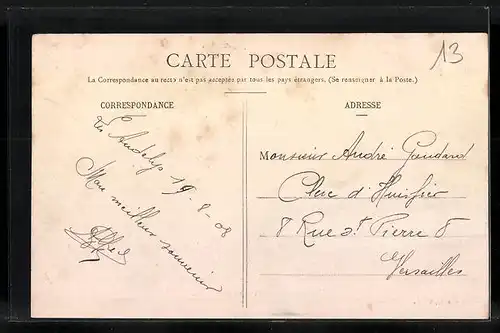 13
CARTE POSTALE
La Correspondance au recto n'est pas acceptée par tous les pays étrangers. (Se renseigner à la Poste.)
CORRESPONDANCE
Les Andelys 19-8-08
Mon meilleur souvenir
ADRESSE
Monsieur André Goudard
Clerc d'Huissier
8 Rue St Pierre 8
Versailles